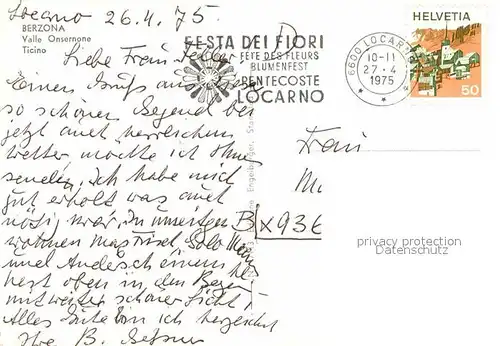 Locarno 26.4.75.
BERZONA
Valle Onsernone
Ticino
Liebe Frau Feller
Einen Gruß aus
so schöner Gegend bei
jetzt auch herrlichem
Wetter, möchte ich Ihnen
senden. Ich habe mich
gut erholt was auch
nötig war. In unserigen
wohnen Max Frisch, Golo Mann
und Andersch einem
nest oben in den Bergen
mit weiter schöner Sicht
Alles Gute bin ich herzlichst
Ihre B.
FESTA DEI FIORI
FÊTE DES FLEURS
BLUMENFEST
PENTECOSTE
LOCARNO
6600 LOCARNO
10-11
27.4
1975
HELVETIA
50
Frau
M.
BX93E
privacy protection
Datenschutz